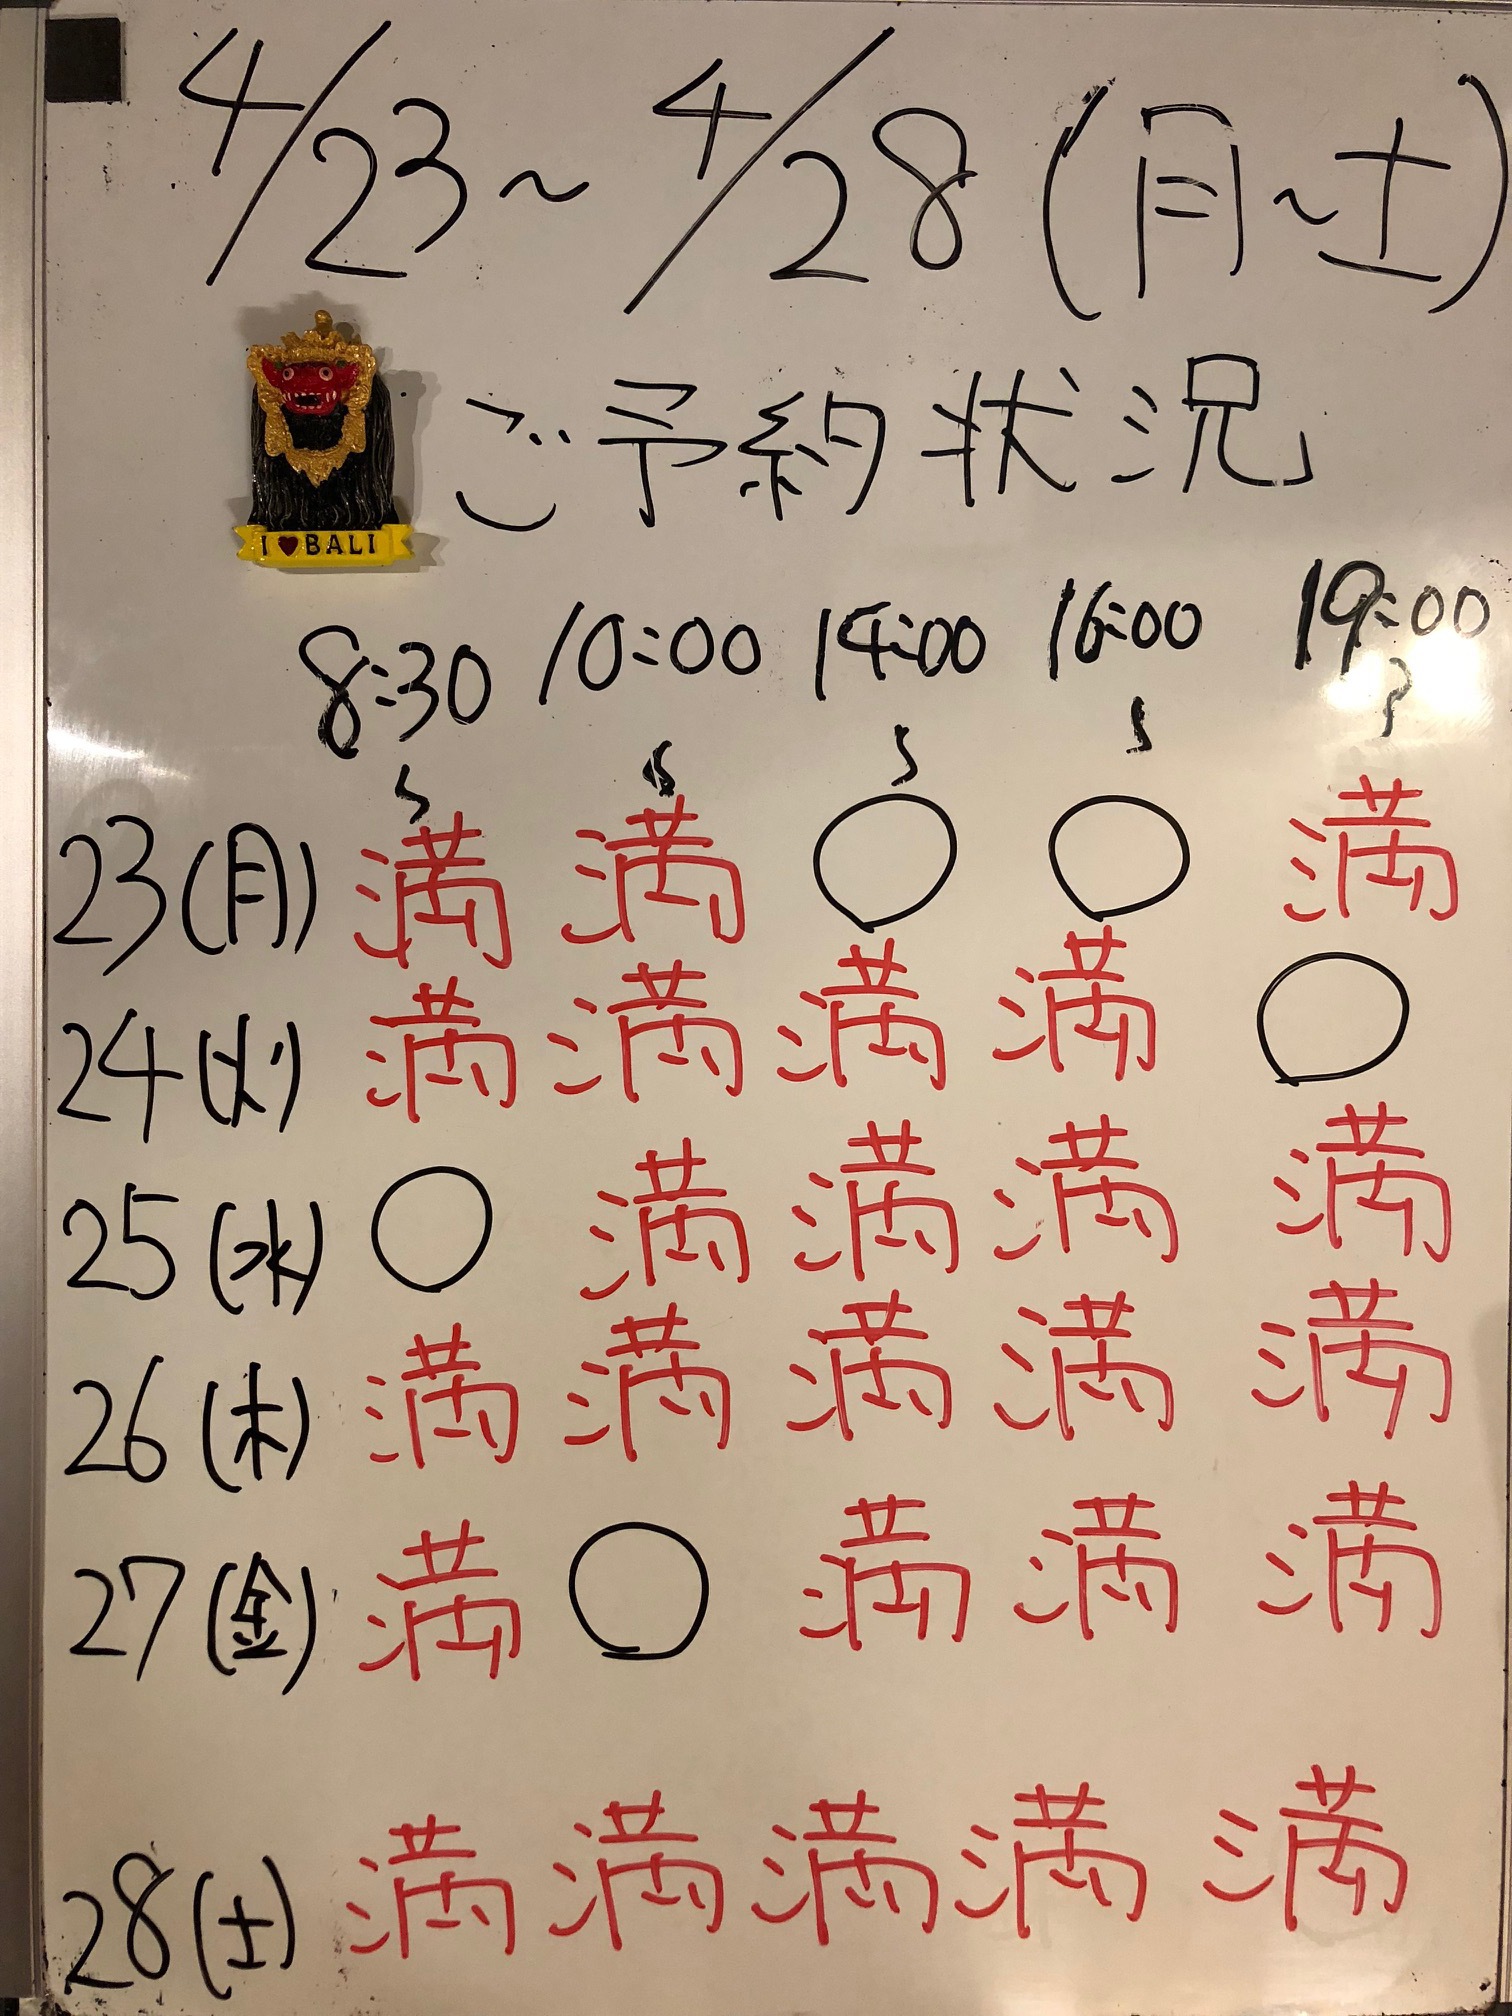 4/23〜4/28(月〜土)
ご予約状況
I ♥ BALI
8:30〜 10:00〜 14:00〜 16:00〜 19:00〜
23(月) 満 満 ○ ○ 満
24(火) 満 満 満 満 ○
25(水) ○ 満 満 満 満
26(木) 満 満 満 満 満
27(金) 満 ○ 満 満 満
28(土) 満 満 満 満 満